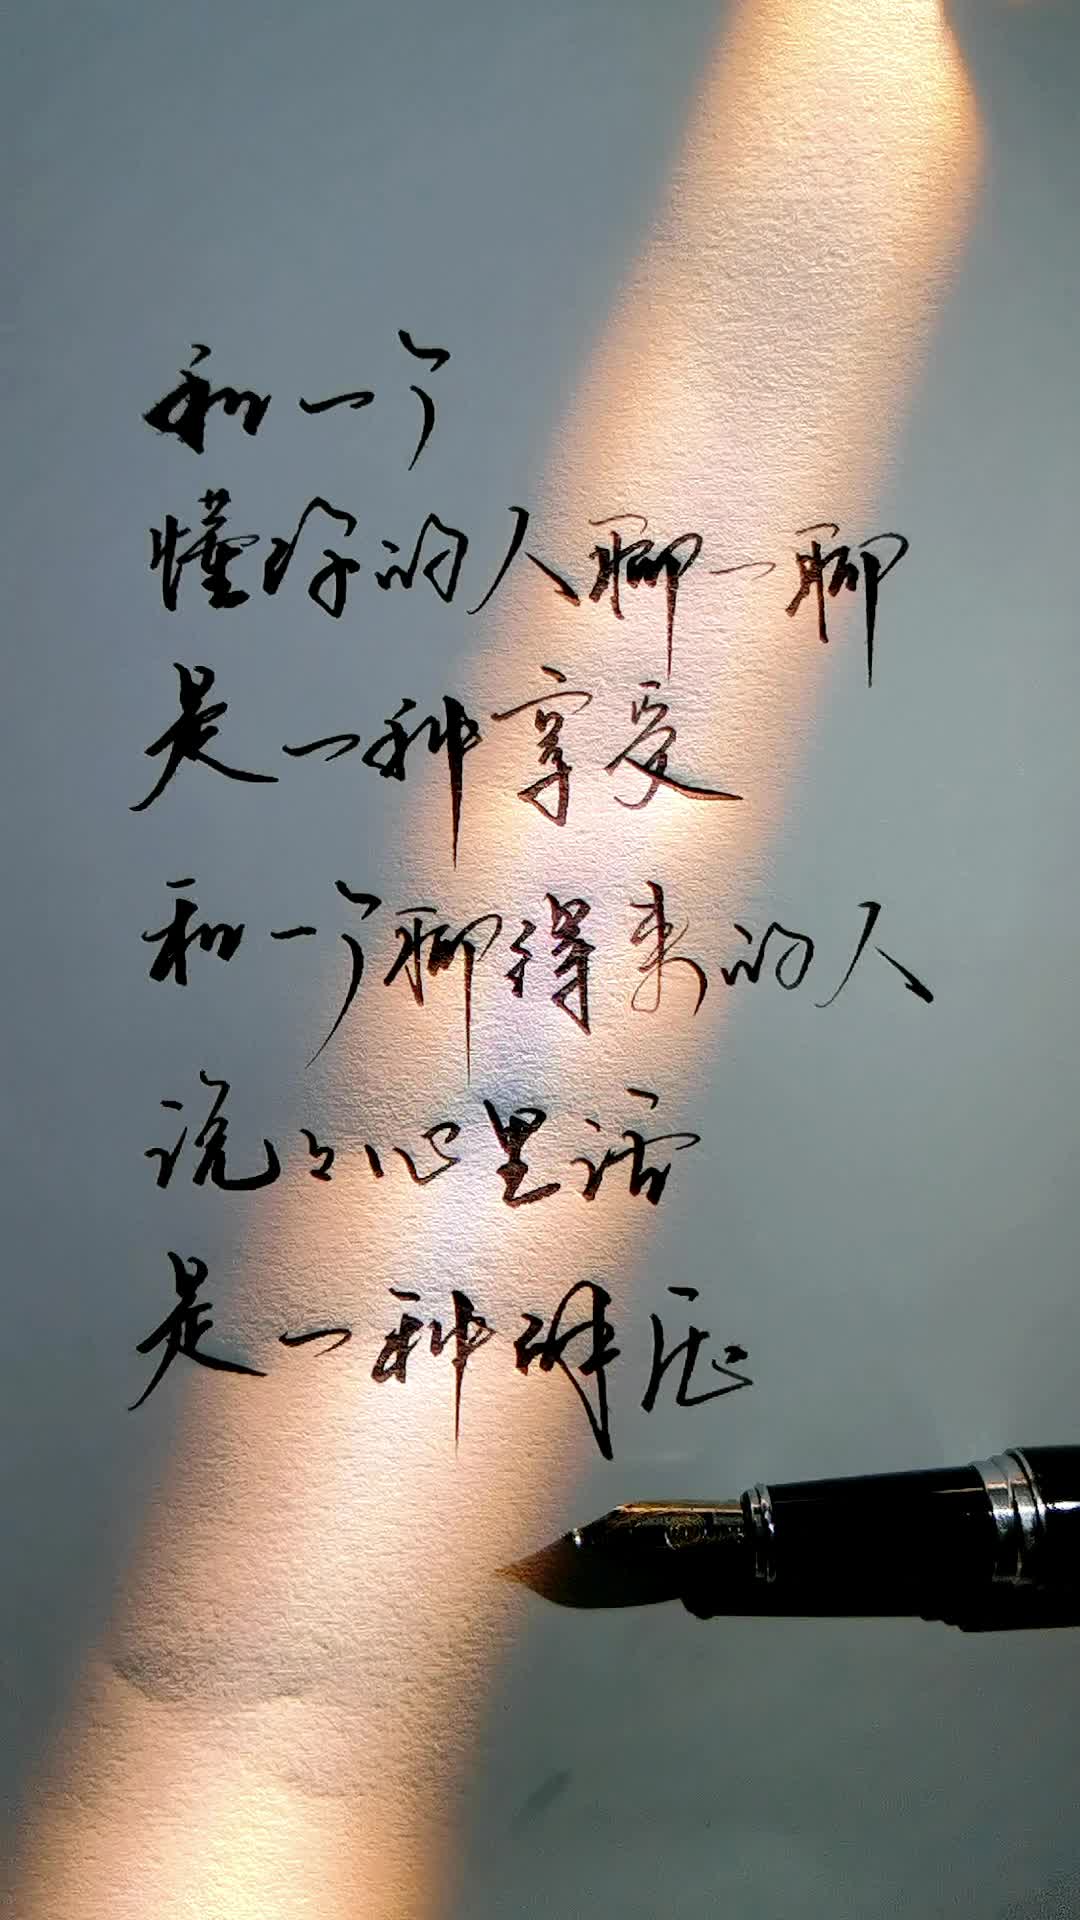 和一个
懂你的人聊一聊
是一种享受
和一个聊得来的人
说说心里话
是一种解压